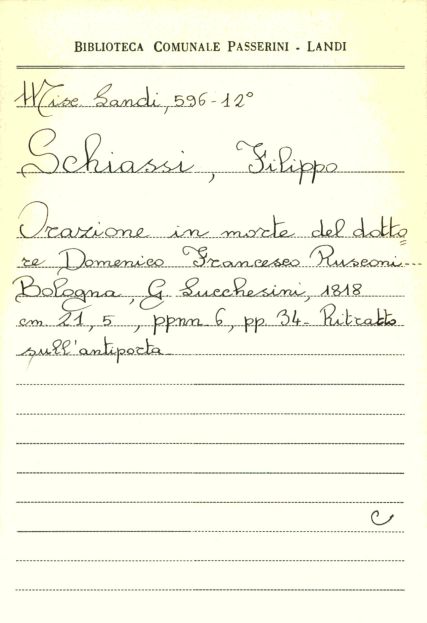 BIBLIOTECA COMUNALE PASSERINI - LANDI
Misc. Landi, 596-12°
Schiassi, Filippo
Orazione in morte del dotto=
re Domenico Francesco Rusconi.--
Bologna, G. Lucchesini, 1818
cm. 21,5, ppnn. 6, pp. 34. Ritratto
sull'antiporta.
C